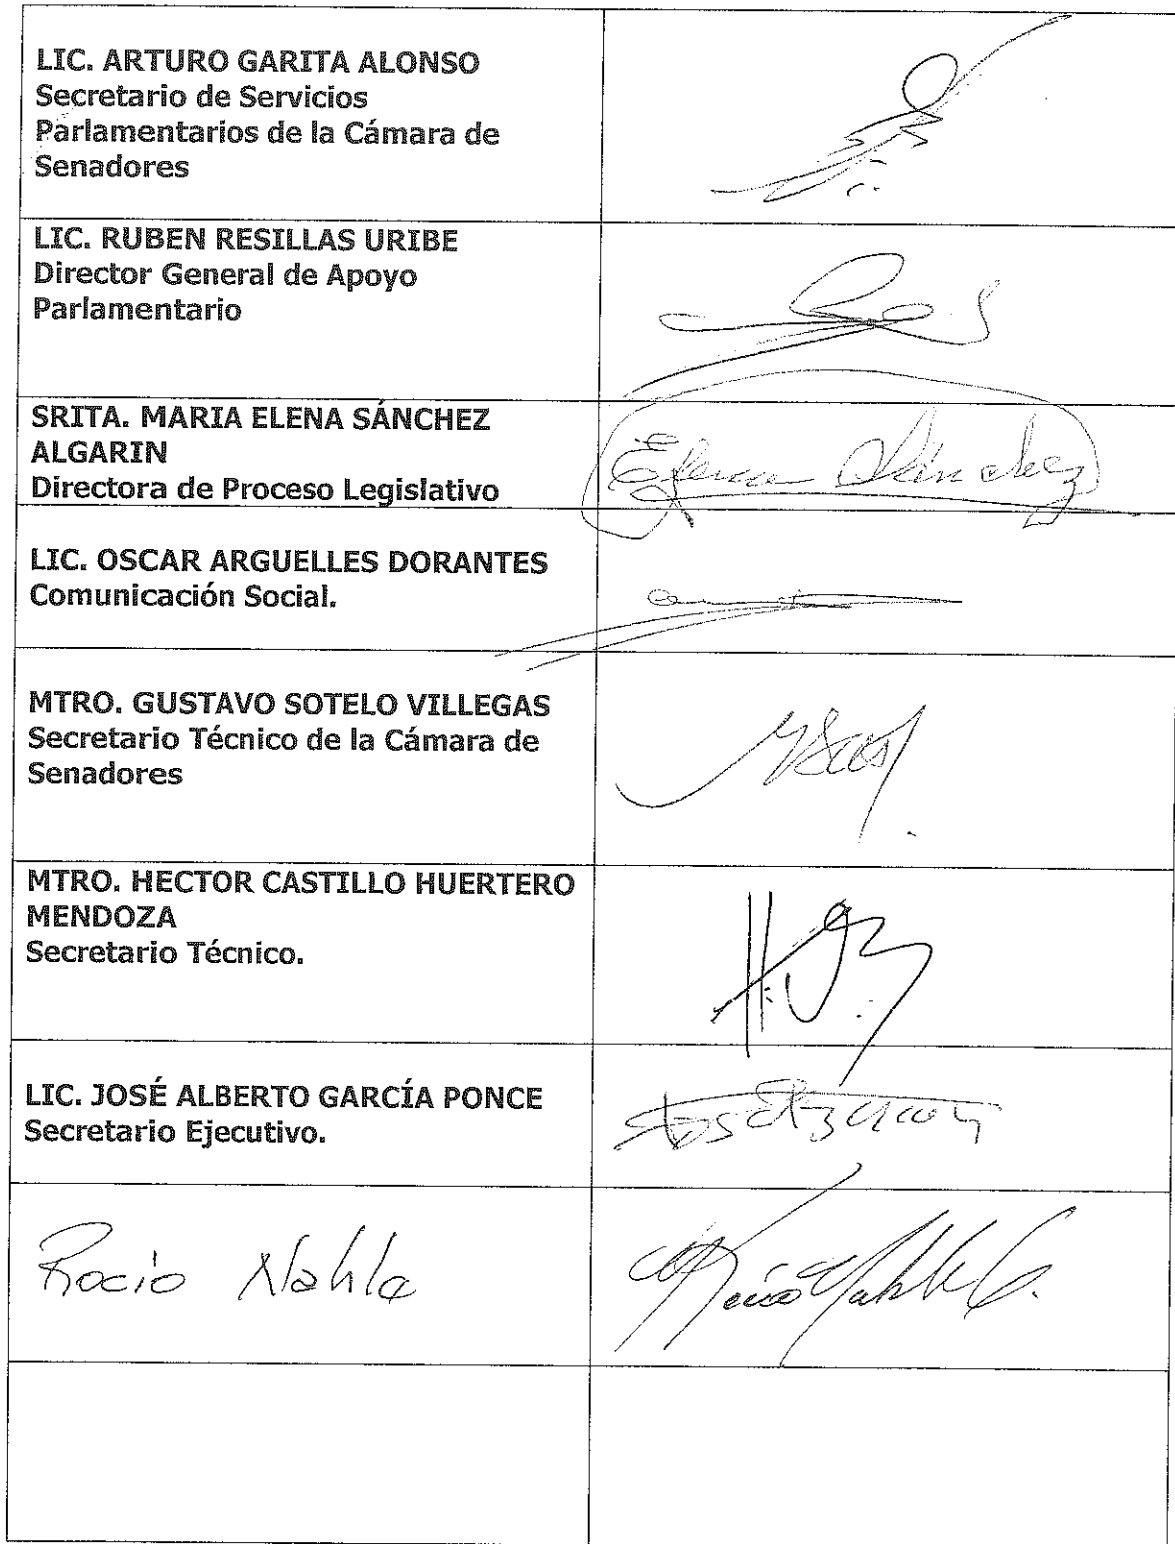 LIC. ARTURO GARITA ALONSO
Secretario de Servicios
Parlamentarios de la Cámara de
Senadores
LIC. RUBEN RESILLAS URIBE
Director General de Apoyo
Parlamentario
SRITA. MARIA ELENA SÁNCHEZ
ALGARIN
Directora de Proceso Legislativo
Elena Sánchez
LIC. OSCAR ARGUELLES DORANTES
Comunicación Social.
MTRO. GUSTAVO SOTELO VILLEGAS
Secretario Técnico de la Cámara de
Senadores
MTRO. HECTOR CASTILLO HUERTERO
MENDOZA
Secretario Técnico.
LIC. JOSÉ ALBERTO GARCÍA PONCE
Secretario Ejecutivo.
Rocio Nahle